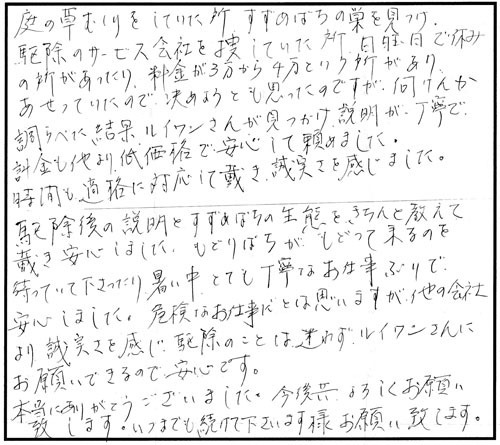 庭の草むしりをしていた所 すずめばちの巣を見つけ、
駆除のサービス会社を捜していた所、日曜日で休み
の所があったり、料金が3万から4万という所があり、
あせっていたので、決めようとも思ったのですが、何けんか
調らべた結果、ルイワンさんが見つかり、説明が、丁寧で、
料金も他より低価格で安心して頼めました。
時間も適格に対応して戴き、誠実さを感じました。
駆除後の説明とすずめばちの生態を、きちんと教えて
戴き安心しました。もどりばちが、もどって来るのを
待っていて下さったり 暑い中、とても丁寧なお仕事ぶりで、
安心しました。危険なお仕事だとは思いますが、他の会社
より誠実さを感じ、駆除のことは迷わず、ルイワンさんに
お願いできるので安心です。
本当にありがとうございました。今後共、よろしくお願い
致します。いつまでも続けて下さいます様お願い致します。